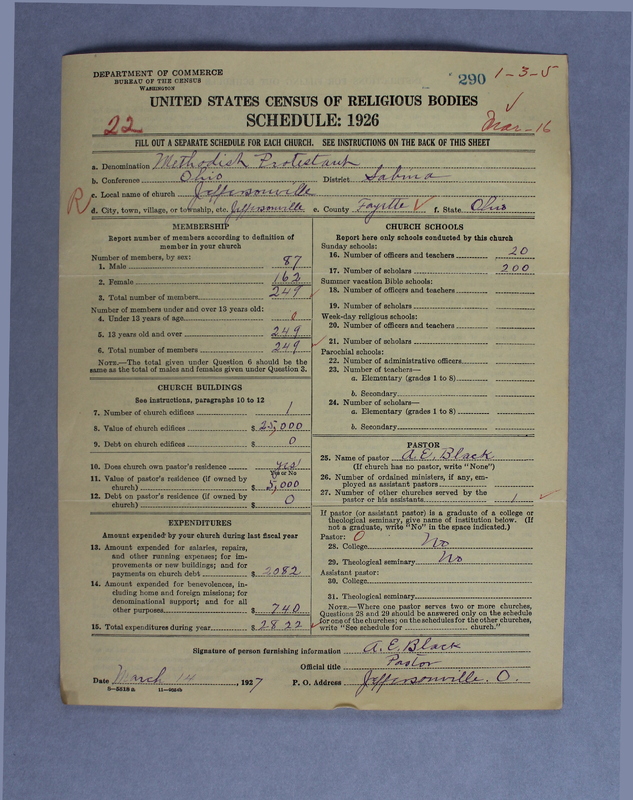 DEPARTMENT OF COMMERCE
BUREAU OF THE CENSUS
WASHINGTON
290 1-3-5
UNITED STATES CENSUS OF RELIGIOUS BODIES
SCHEDULE: 1926
22
Mar-16
FILL OUT A SEPARATE SCHEDULE FOR EACH CHURCH. SEE INSTRUCTIONS ON THE BACK OF THIS SHEET
a. Denomination Methodist Protestant
b. Conference Ohio District Sabina
c. Local name of church Jeffersonville
R
d. City, town, village, or township, etc. Jeffersonville e. County Fayette f. State Ohio
MEMBERSHIP
Report number of members according to definition of
member in your church
Number of members, by sex:
1. Male 87
2. Female 162
3. Total number of members 249
Number of members under and over 13 years old:
4. Under 13 years of age 0
5. 13 years old and over 249
6. Total number of members 249
NOTE.—The total given under Question 6 should be the
same as the total of males and females given under Question 3.
CHURCH BUILDINGS
See instructions, paragraphs 10 to 12
7. Number of church edifices 1
8. Value of church edifices $ 25,000
9. Debt on church edifices $ 0
10. Does church own pastor's residence yes
Yes or No
11. Value of pastor's residence (if owned by
church) $ 5,000
12. Debt on pastor's residence (if owned by
church) $ 0
EXPENDITURES
Amount expended by your church during last fiscal year
13. Amount expended for salaries, repairs,
and other running expenses; for im-
provements or new buildings; and for
payments on church debt $ 2082
14. Amount expended for benevolences, in-
cluding home and foreign missions; for
denominational support; and for all
other purposes $ 740
15. Total expenditures during year $ 2822
CHURCH SCHOOLS
Report here only schools conducted by this church
Sunday schools:
16. Number of officers and teachers 20
17. Number of scholars 200
Summer vacation Bible schools:
18. Number of officers and teachers
19. Number of scholars
Week-day religious schools:
20. Number of officers and teachers
21. Number of scholars
Parochial schools:
22. Number of administrative officers
23. Number of teachers—
a. Elementary (grades 1 to 8)
b. Secondary
24. Number of scholars—
a. Elementary (grades 1 to 8)
b. Secondary
PASTOR
25. Name of pastor A.E. Black
(If church has no pastor, write "None")
26. Number of ordained ministers, if any, em-
ployed as assistant pastors
27. Number of other churches served by the
pastor or his assistants 1
If pastor (or assistant pastor) is a graduate of a college or
theological seminary, give name of institution below. (If
not a graduate, write "No" in the space indicated.)
Pastor: 0
28. College No
29. Theological seminary No
Assistant pastor:
30. College
31. Theological seminary
NOTE.—Where one pastor serves two or more churches,
Questions 28 and 29 should be answered only on the schedule
for one of the churches; on the schedules for the other churches,
write "See schedule for church."
Signature of person furnishing information A.E. Black
Official title Pastor
Date March 14, 1927 P. O. Address Jeffersonville. O.